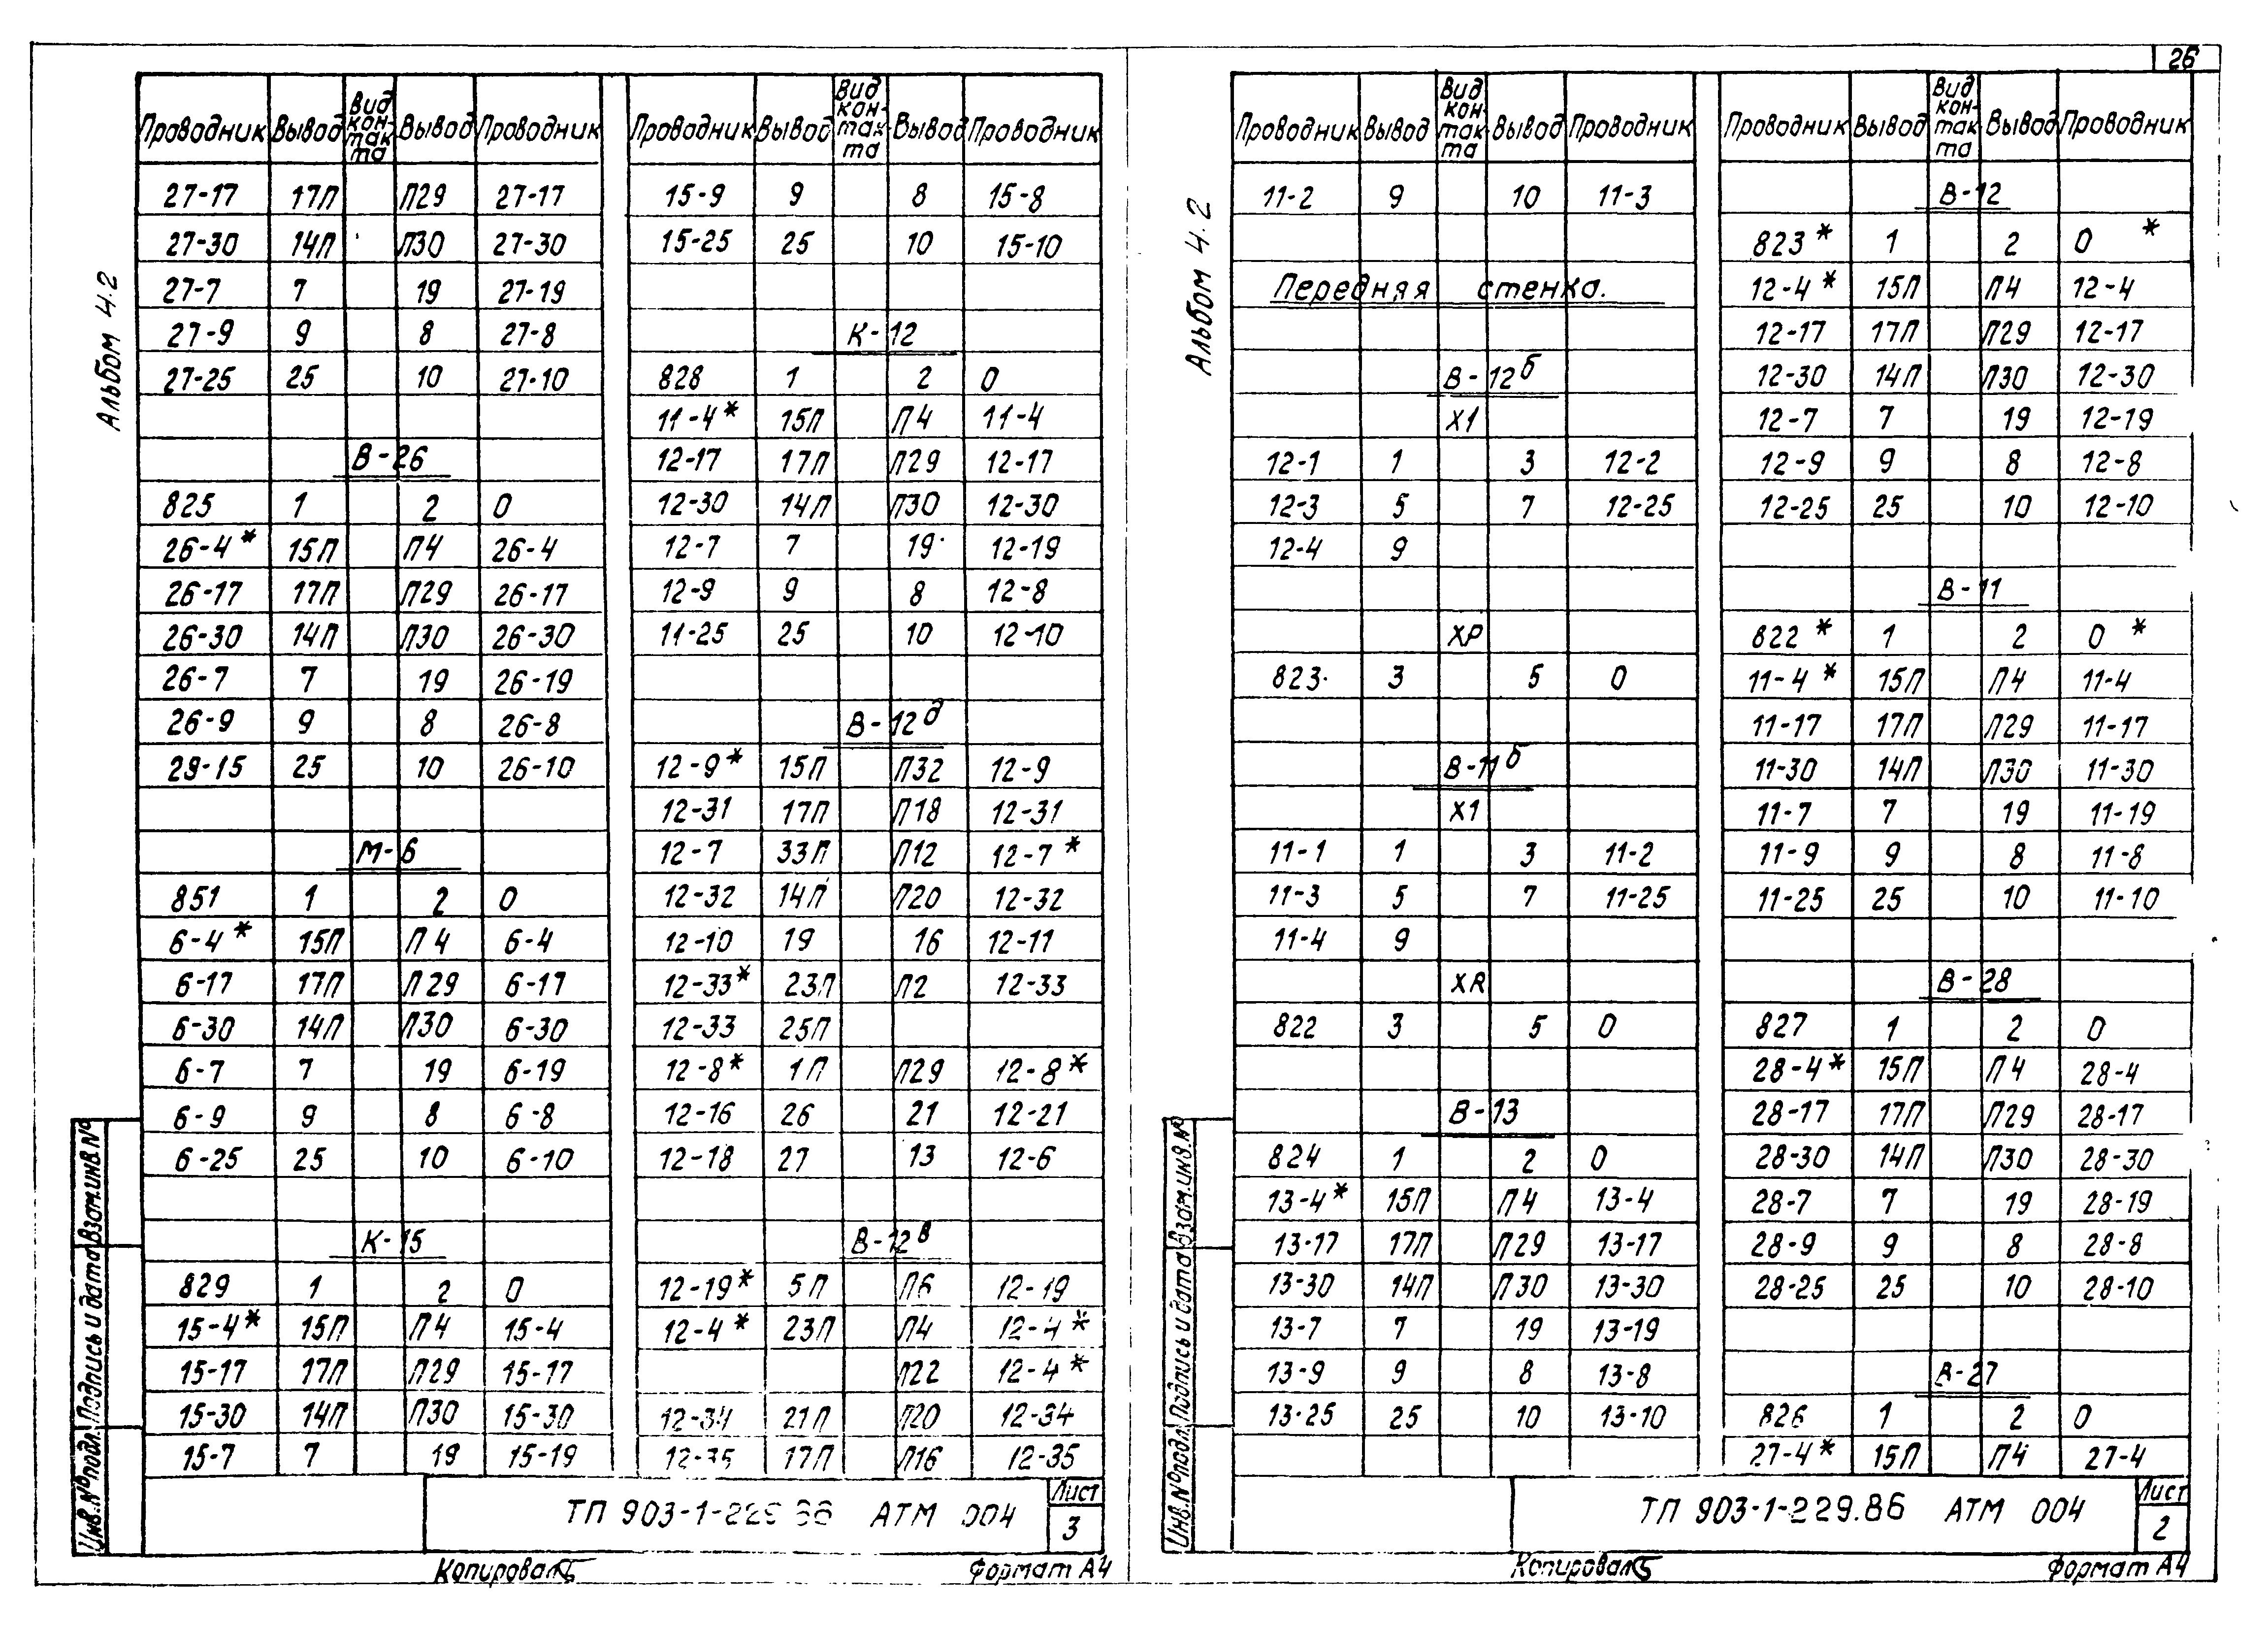 26
Альбом 4.2
Проводник Вывод Вид кон-такта Вывод Проводник
27-17 17П П29 27-17
27-30 14П П30 27-30
27-7 7 19 27-19
27-9 9 8 27-8
27-25 25 10 27-10
В-26
825 1 2 0
26-4* 15П П4 26-4
26-17 17П П29 26-17
26-30 14П П30 26-30
26-7 7 19 26-19
26-9 9 8 26-8
29-15 25 10 26-10
М-6
851 1 2 0
6-4* 15П П4 6-4
6-17 17П П29 6-17
6-30 14П П30 6-30
6-7 7 19 6-19
6-9 9 8 6-8
6-25 25 10 6-10
К-15
829 1 2 0
15-4* 15П П4 15-4
15-17 17П П29 15-17
15-30 14П П30 15-30
15-7 7 19 15-19
Проводник Вывод Вид кон-так-та Вывод Проводник
15-9 9 8 15-8
15-25 25 10 15-10
К-12
828 1 2 0
11-4* 15П П4 11-4
12-17 17П П29 12-17
12-30 14П П30 12-30
12-7 7 19 12-19
12-9 9 8 12-8
11-25 25 10 12-10
В-12д
12-9* 15П П32 12-9
12-31 17П П18 12-31
12-7 33П П12 12-7*
12-32 14П П20 12-32
12-10 19 16 12-11
12-33* 23П П2 12-33
12-33 25П
12-8* 1П П29 12-8*
12-16 26 21 12-21
12-18 27 13 12-6
В-12в
12-19* 5П П6 12-19
12-4* 23П П4 12-4*
П22 12-4*
12-34 21П П20 12-34
12-35 17П П16 12-35
Инв.№подл. Подпись и дата Взам.инв.№
ТП 903-1-229.86 АТМ 004
Лист
3
Копировал
Формат А4
Альбом 4.2
Проводник Вывод Вид кон-так-та Вывод Проводник
11-2 9 10 11-3
Передняя стенка.
В-12б
Х1
12-1 1 3 12-2
12-3 5 7 12-25
12-4 9
ХР
823 3 5 0
В-11б
Х1
11-1 1 3 11-2
11-3 5 7 11-25
11-4 9
ХR
822 3 5 0
В-13
824 1 2 0
13-4* 15П П4 13-4
13-17 17П П29 13-17
13-30 14П П30 13-30
13-7 7 19 13-19
13-9 9 8 13-8
13-25 25 10 13-10
Проводник Вывод Вид кон-так-та Вывод Проводник
В-12
823* 1 2 0 *
12-4* 15П П4 12-4
12-17 17П П29 12-17
12-30 14П П30 12-30
12-7 7 19 12-19
12-9 9 8 12-8
12-25 25 10 12-10
В-11
822* 1 2 0 *
11-4* 15П П4 11-4
11-17 17П П29 11-17
11-30 14П П30 11-30
11-7 7 19 11-19
11-9 9 8 11-8
11-25 25 10 11-10
В-28
827 1 2 0
28-4* 15П П4 28-4
28-17 17П П29 28-17
28-30 14П П30 28-30
28-7 7 19 28-19
28-9 9 8 28-8
28-25 25 10 28-10
В-27
826 1 2 0
27-4* 15П П4 27-4
Инв.№подл. Подпись и дата Взам.инв.№
ТП 903-1-229.86 АТМ 004
Лист
2
Копировал
Формат А4